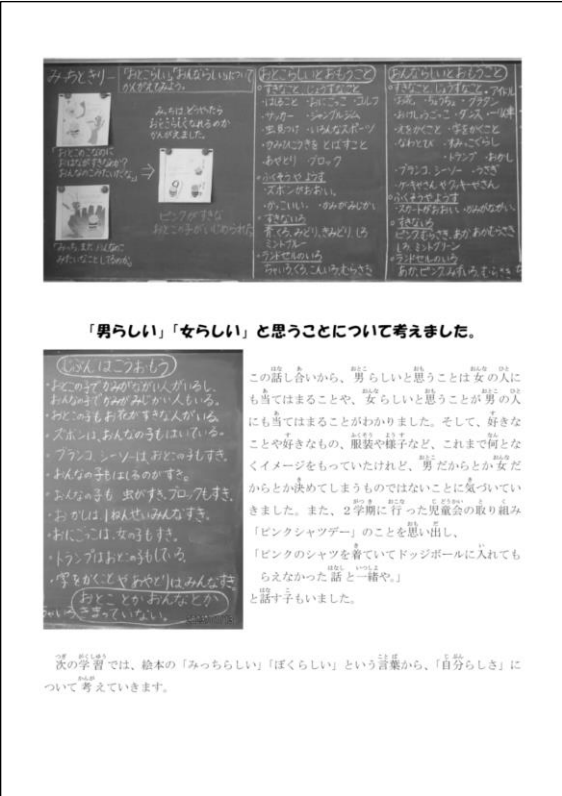 みっちときりー
「おとこらしい」「おんならしい」について
かんがえてみよう。
「おとこのこなのに
おはながすきなのか?
おんなのこみたいだな。」
みっちは どうやったら
おとこらしくなれるのか
かんがえました。
⇒
ピンクがすきな
おとこの子がいじめられた
おとこらしいとおもうこと
すきなこと、じょうずなこと
・はしること ・おにごっこ ・ゴルフ
・サッカー ・ジャングルジム
・虫見つけ ・いろんなスポーツ
・かみひこうきを とばすこと
・あやとり ・ブロック
・ふくそうやようす
・ズボンがおおい。
・かっこいい。 ・かみがみじかい。
・すきないろ
青、くろ、みどり、きみどり、しろ
ミントブルー
・ランドセルのいろ
ちゃいろ、くろ、こんいろ、むらさき
おんならしいとおもうこと
・すきなこと、じょうずなこと ・アイドル
・お花 ・ちょうちょ ・グラタン
・おけしょうごっこ ・ダンス
・えをかくこと ・字をかくこと
・なわとび ・すみっこぐらし
・トランプ ・おかし
・ブランコ、シーソー ・うさぎ
・ケーキやさんやクッキーやさん
・ふくそうやようす
・スカートがおおい。 ・かみがながい。
・すきないろ
ピンク、むらさき、あか、あかむらさき
しろ、ミントグリーン
・ランドセルのいろ
あか、ピンク、みずいろ、むらさき
「男らしい」「女らしい」と思うことについて考えました。
じぶんはこうおもう
・おとこの子でかみがながい人がいるし、
おんなの子でかみがみじかい人もいる。
・おとこの子もお花がすきな人がいる。
・ズボンは、おんなの子もはいている。
・ブランコ、シーソーは おとこの子もすき。
・おんなの子もはしるのがすき。
・おんなの子も 虫がすき、ブロックもすき。
・おかしは、1ねんせいみんなすき。
・おにごっこは、女の子もすき。
・トランプはおとこの子もしている。
・字をかくことやあやとりはみんなすき。
おとことかおんなとか
きまっていない。
この話し合いから、男らしいと思うことは女の人に
も当てはまることや、女らしいと思うことが男の人
にも当てはまることがわかりました。そして、好きな
ことや好きなもの、服装や様子など、これまで何とな
くイメージをもっていたけれど、男だからとか女だ
からとか決めてしまうものではないことに気づいてい
きました。また、2学期に行った児童会の取り組み
「ピンクシャツデー」のことを思い出し、
「ピンクのシャツを着ていてドッジボールに入れても
らえなかった話と一緒や。」
と話す子もいました。
次の学習では、絵本の「みっちらしい」「ぼくらしい」という言葉から、「自分らしさ」に
ついて考えていきます。